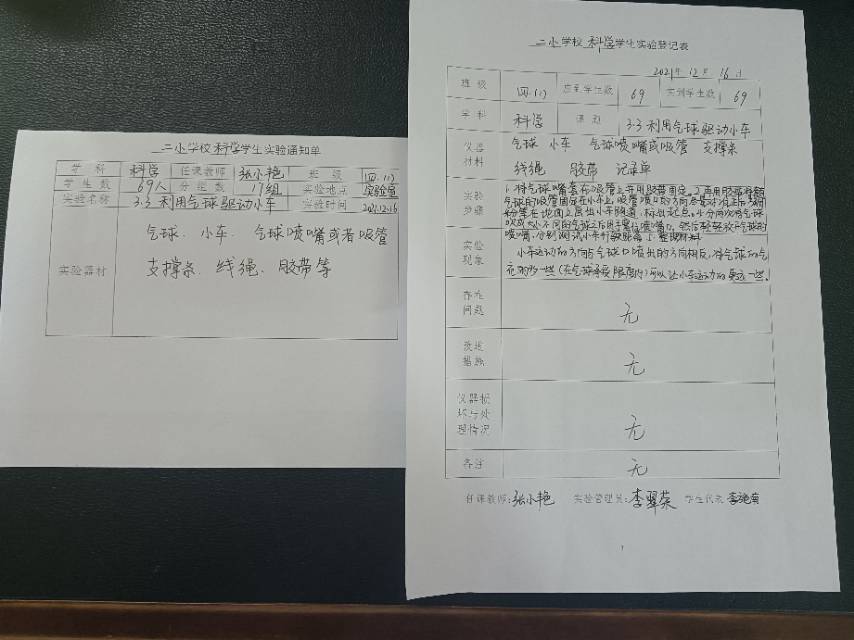 二小学校科学学生实验通知单
学科 科学 任课教师 张小艳 班级 四.(1)
学生数 69人 分组数 17组 实验地点 实验室
实验名称 3.3 利用气球驱动小车 实验时间 2021.12.16
实验器材 气球、小车、气球喷嘴或者吸管
支撑条、线绳、胶带等
二小学校科学学生实验登记表
2021年12月16日
班级 四.(1) 应到学生数 69 实到学生数 69
学科 科学 课题 3.3 利用气球驱动小车
仪器材料 气球 小车 气球喷嘴或吸管 支撑条
线绳 胶带 记录单
实验步骤 1.将气球嘴套在吸管上并用胶带固定。2.再用胶带将
气球的吸管固定在小车上,吸管喷口的方向
实验现象 小车运动的方向与气球口喷出的方向相反,将气球的气
(在气球承受限度内)可以让小车运动的更远一些。
存在问题 无
改进措施 无
仪器损坏与处理情况 无
备注 无
任课教师:张小艳 实验管理员:李翠荣 学生代表